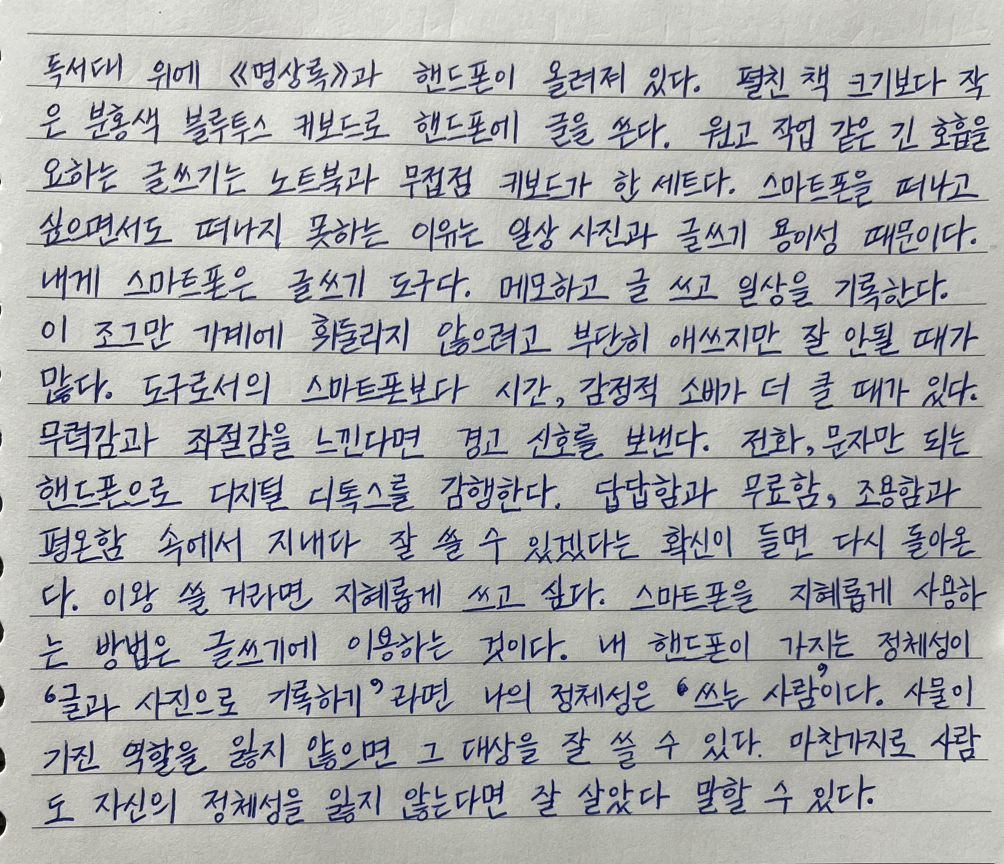 독서대 위에 《명상록》과 핸드폰이 올려져 있다. 펼친 책 크기보다 작
은 분홍색 블루투스 키보드로 핸드폰에 글을 쓴다. 원고 작업 같은 긴 호흡을
요하는 글쓰기는 노트북과 무접점 키보드가 한 세트다. 스마트폰을 떠나고
싶으면서도 떠나지 못하는 이유는 일상 사진과 글쓰기 용이성 때문이다.
내게 스마트폰은 글쓰기 도구다. 메모하고 글 쓰고 일상을 기록한다.
이 조그만 기계에 휘둘리지 않으려고 부단히 애쓰지만 잘 안될 때가
많다. 도구로서의 스마트폰보다 시간, 감정적 소비가 더 클 때가 있다.
무력감과 좌절감을 느낀다면 경고 신호를 보낸다. 전화, 문자만 되는
핸드폰으로 디지털 디톡스를 감행한다. 답답함과 무료함, 조용함과
평온함 속에서 지내다 잘 쓸 수 있겠다는 확신이 들면 다시 돌아온
다. 이왕 쓸 거라면 지혜롭게 쓰고 싶다. 스마트폰을 지혜롭게 사용하
는 방법은 글쓰기에 이용하는 것이다. 내 핸드폰이 가지는 정체성이
‘글과 사진으로 기록하기’라면 나의 정체성은 ‘쓰는 사람’이다. 사물이
가진 역할을 잃지 않으면 그 대상을 잘 쓸 수 있다. 마찬가지로 사람
도 자신의 정체성을 잃지 않는다면 잘 살았다 말할 수 있다.